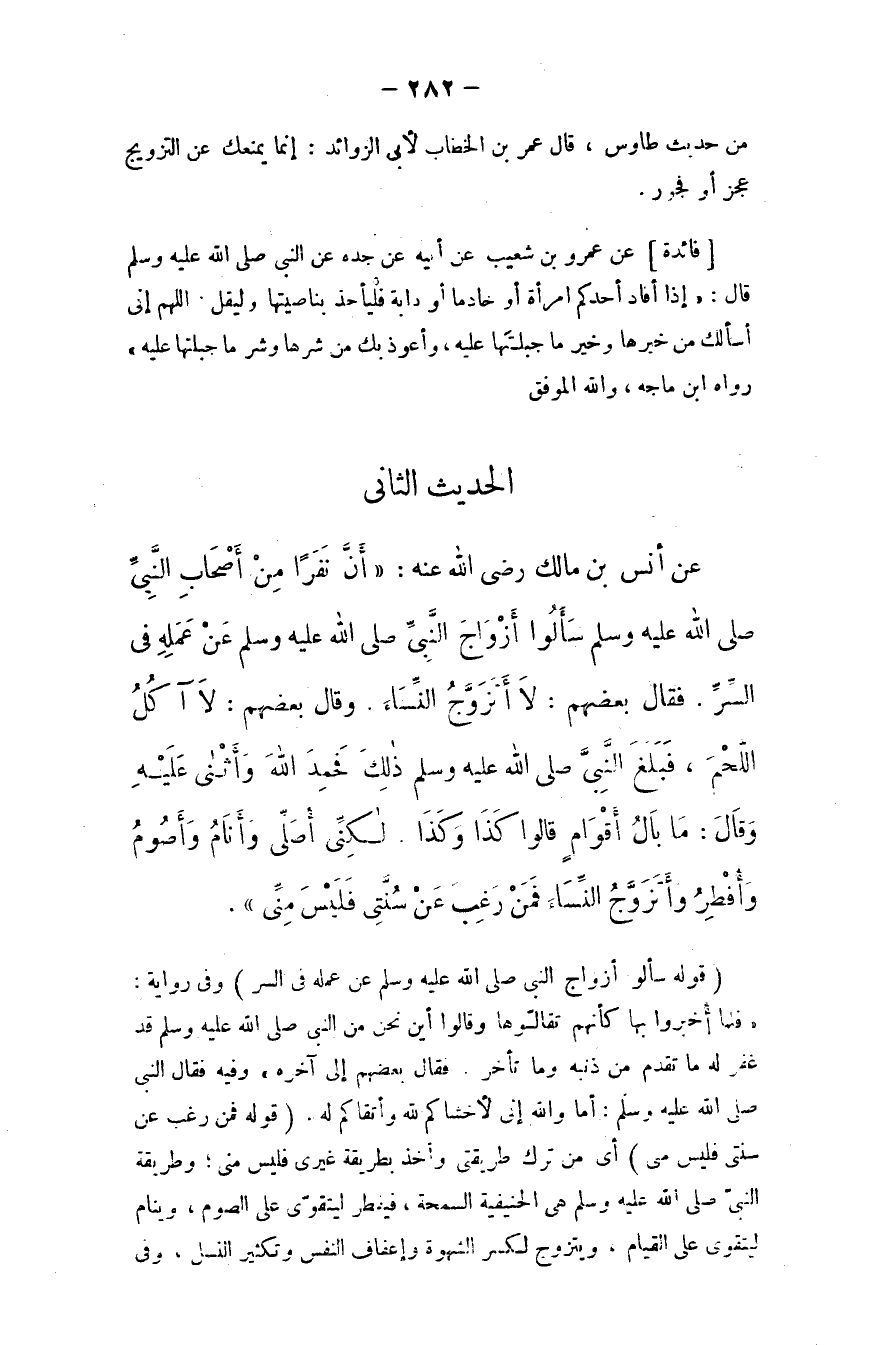 – ٢٨٢ –
من حديث طاوس ، قال عمر بن الخطاب لأبى الزوائد : إنما يمنعك عن التزويج
عجز أو فجور .
[ فائدة ] عن عمرو بن شعيب عن أبيه عن جده عن النبى صلى الله عليه وسلم
قال : « إذا أفاد أحدكم امرأة أو خادما أو دابة فليأخذ بناصيتها وليقل : اللهم إنى
أسألك من خيرها وخير ما جبلتَها عليه ، وأعوذ بك من شرها وشر ما جبلتها عليه »
رواه ابن ماجه ، والله الموفق
الحديث الثانى
عن أنس بن مالك رضى الله عنه : « أَنَّ نَفَرًا مِنْ أَصْحَابِ النَّبِىِّ
صلى الله عليه وسلم سَأَلُوا أَزْوَاجَ النَّبِىِّ صلى الله عليه وسلم عَنْ عَمَلِهِ فى
السِّرِّ . فقال بعضهم : لاَ أَتَزَوَّجُ النِّسَاءَ . وقال بعضهم : لاَ آكُلُ
اللَّحْمَ ، فَبَلَغَ النَّبِىَّ صلى الله عليه وسلم ذٰلِكَ فَحَمِدَ اللهَ وَأَثْنٰى عَلَيْهِ
وَقَالَ : مَا بَالُ أَقْوَامٍ قالوا كَذَا وَكَذَا . لٰكِنِّى أُصَلِّى وَأَنَامُ وَأَصُومُ
وَأُفْطِرُ وأَتَزَوَّجُ النِّسَاءَ فَمَنْ رَغِبَ عَنْ سُنَّتِى فَلَيْسَ مِنِّى » .
( قوله سألو أزواج النبى صلى الله عليه وسلم عن عمله فى السر ) وفى رواية :
« فلما أُخبروا بها كأنهم تقالّوها وقالوا أين نحن من النبى صلى الله عليه وسلم قد
غفر له ما تقدم من ذنبه وما تأخر . فقال بعضهم إلى آخره » وفيه فقال النبى
صلى الله عليه وسلم : أما والله إنى لأخشاكم لله وأتقاكم له . ( قوله فمن رغب عن
سنتى فليس منى ) أى من ترك طريقتى وأخذ بطريقة غيرى فليس منى ؛ وطريقة
النبىّ صلى الله عليه وسلم هى الحنيفية السمحة ، فيفطر ليتقوّى على الصوم ، وينام
ليتقوى على القيام ، ويتزوج لكسر الشهوة وإعفاف النفس وتكثير النسل ، وفى